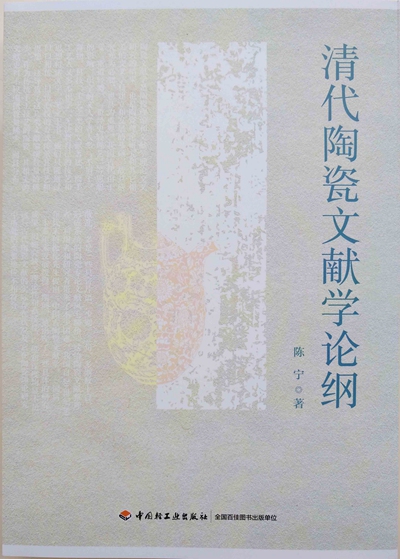 清代陶瓷文献学论纲
陈宁◎著
中国轻工业出版社 | 全国百佳图书出版单位